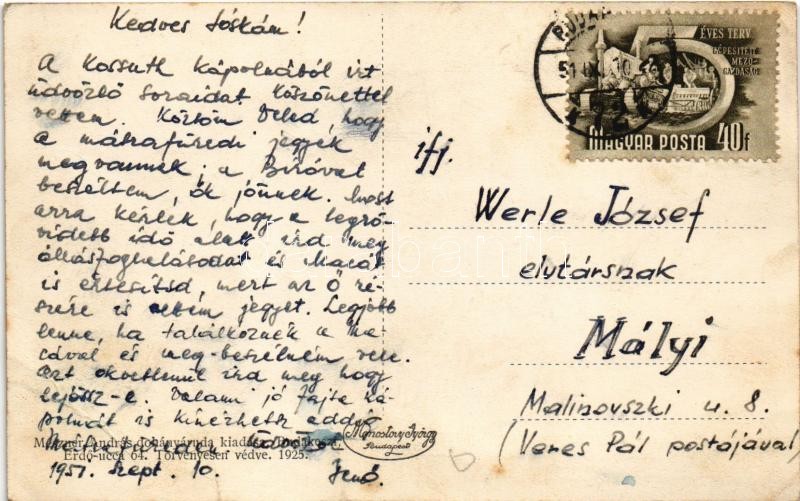 Kedves Jóskám!
A Kossuth kápolnából írt
üdvözlő soraidat köszönettel
vettem. Közlöm Veled, hogy
a mátrafüredi jegyek
megvannak; a Bíróval
beszéltem, ők jönnek. Most
arra kérlek, hogy a legrö-
videbb idő alatt írd meg
állásfoglalásodat és Macát
is értesítsd, mert az Ő ré-
szére is vettem jegyet. Legjobb
lenne, ha találkoznék a Ma-
cával és meg-beszélném vele.
Azt okvetlenül írd meg hogy
lejössz-e. Valami jó fajta ká-
polnát is kinézhetsz addig
1951. Szept. 10. Jenő.
András dohányáruda kiadása
Erdő-ucca 64. Törvényesen védve. 1925.
Monostory György
Budapest
51 IX 10
5 ÉVES TERV
GÉPESÍTETT
MEZŐ-
GAZDASÁG
MAGYAR POSTA 40f
ifj.
Werle József
elvtársnak
Mályi
Malinovszki u. 8.
(Veres Pál postájával)